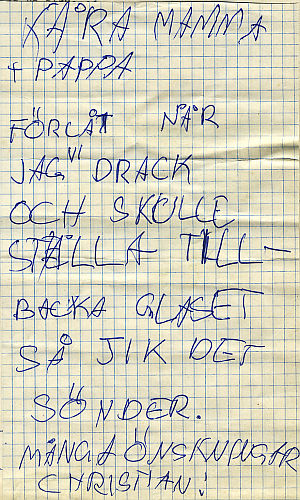 KÄRA MAMMA
+ PAPPA
FÖRLÅT NÄR
JAG VI DRACK
OCH SKULLE
STÄLLA TILL-
BACKA GLASET
SÅ JIK DET
SÖNDER.
MÅNGA ÖNSKNINGAR
CHRISTIAN!